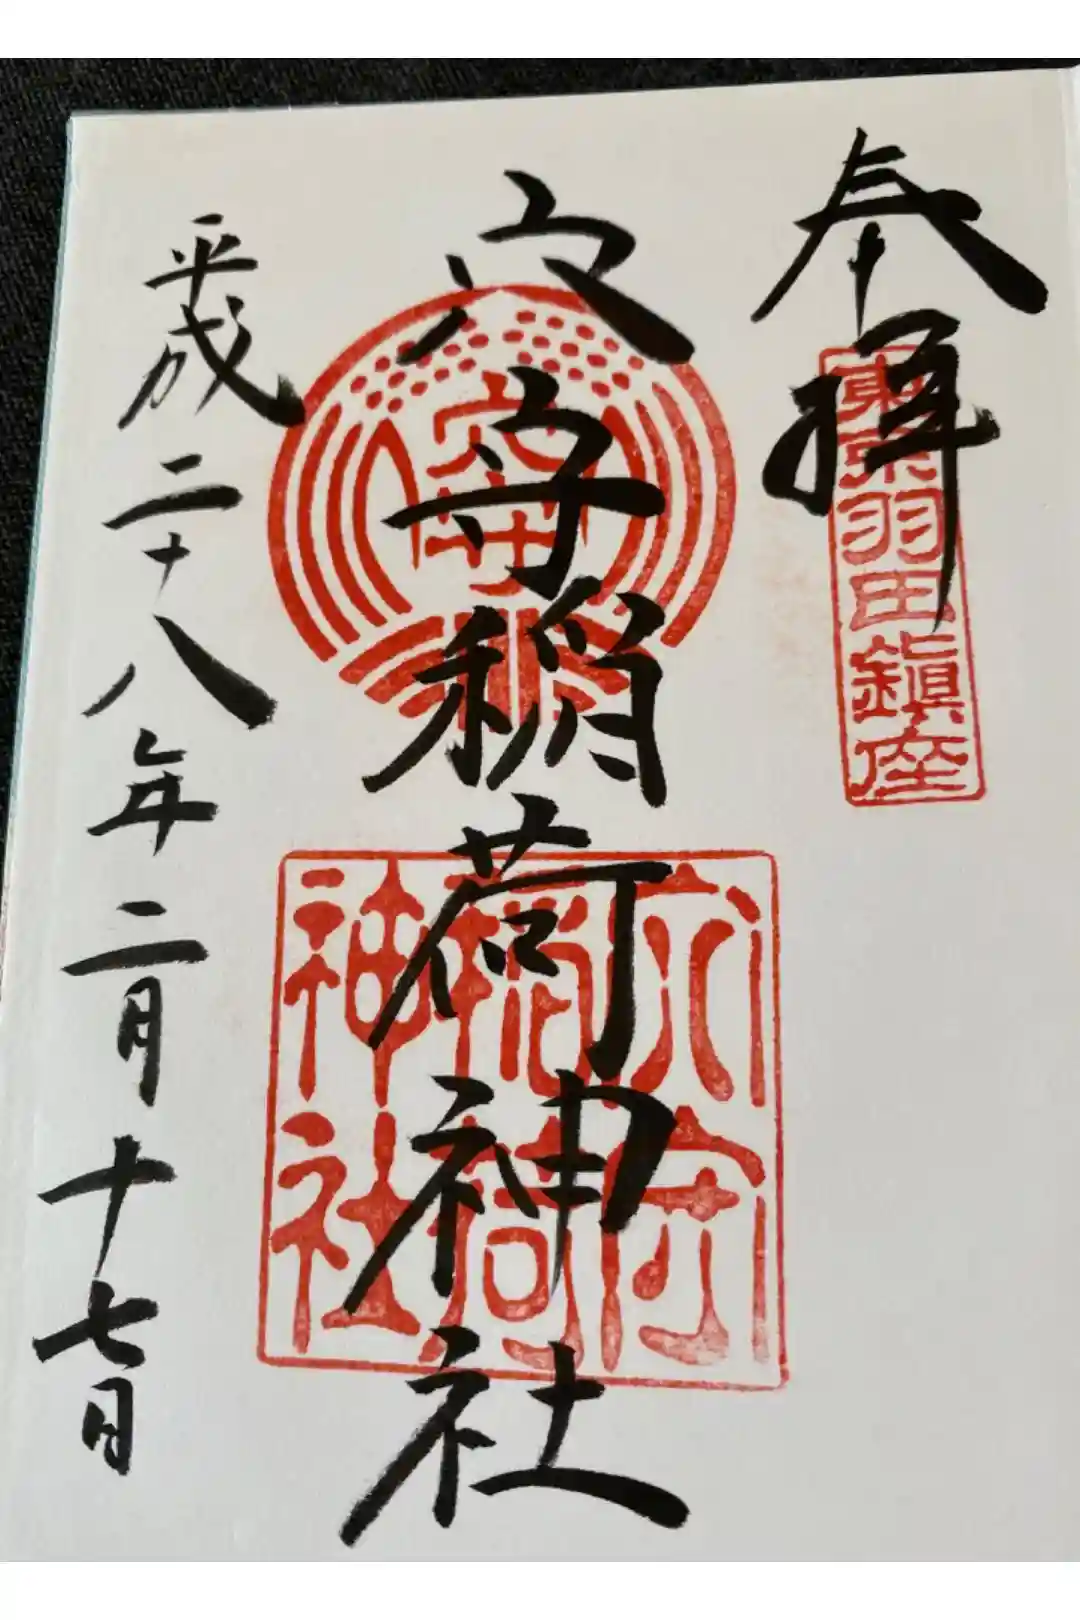 奉拝
東京羽田鎮座
穴守稲荷神社
穴守
穴守稲荷神社
平成二十八年二月十七日